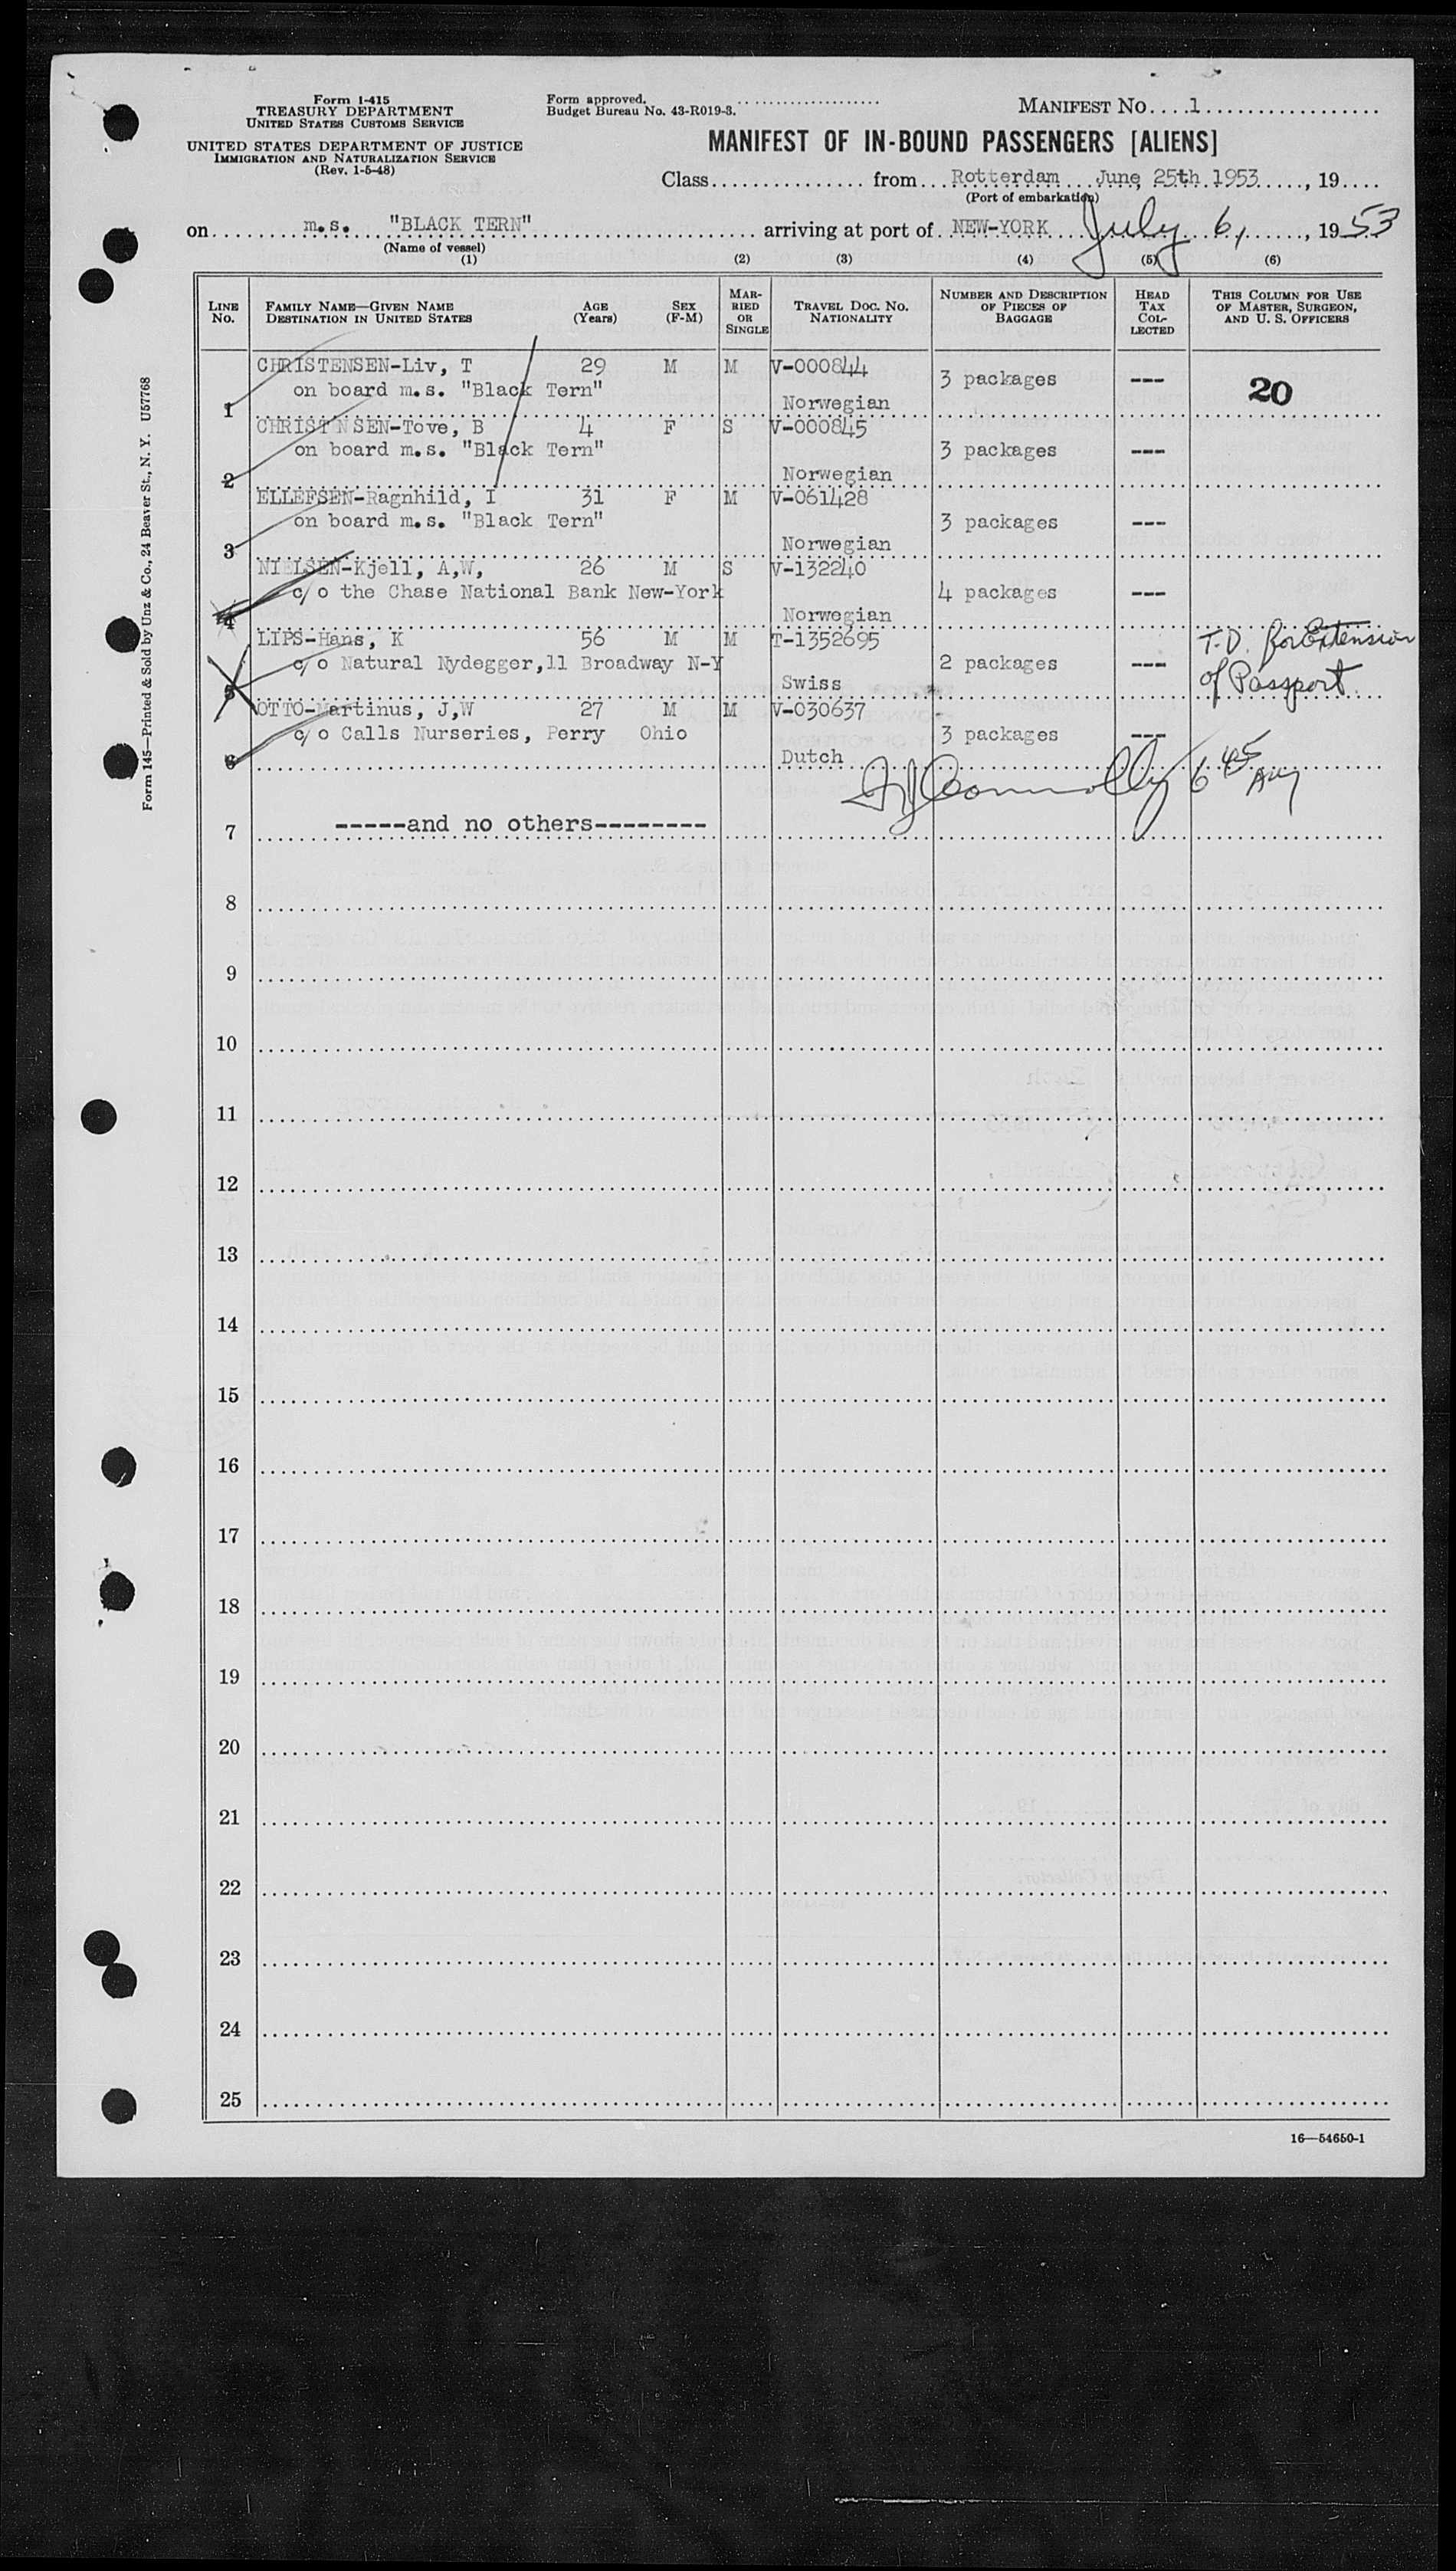 Form I-415
TREASURY DEPARTMENT
UNITED STATES CUSTOMS SERVICE
UNITED STATES DEPARTMENT OF JUSTICE
IMMIGRATION AND NATURALIZATION SERVICE
(Rev. 1-5-48)
Form approved.
Budget Bureau No. 43-R019-3.
MANIFEST NO. 1
MANIFEST OF IN-BOUND PASSENGERS [ALIENS]
Class from Rotterdam June, 25th 1953, 19
(Port of embarkation)
on m.s. "BLACK TERN" arriving at port of NEW-YORK July 6, 1953
(Name of vessel)
(1) (2) (3) (4) (5) (6)
LINE NO. FAMILY NAME—GIVEN NAME DESTINATION IN UNITED STATES AGE (Years) SEX (F-M) MARRIED OR SINGLE TRAVEL DOC. NO. NATIONALITY NUMBER AND DESCRIPTION OF PIECES OF BAGGAGE HEAD TAX COLLECTED THIS COLUMN FOR USE OF MASTER, SURGEON, AND U. S. OFFICERS
CHRISTENSEN-Liv, T 29 M M V-000844
on board m.s. "Black Tern" 3 packages --- 20
1 Norwegian
CHRIST NSEN-Tove, B 4 F S V-000845
on board m.s. "Black Tern" 3 packages ---
2 Norwegian
ELLEFSEN-Ragnhild, I 31 F M V-061428
on board m.s. "Black Tern" 3 packages ---
3 Norwegian
NIELSEN-Kjell, A,W, 26 M S V-132240
c/o the Chase National Bank New-York 4 packages ---
4 Norwegian
LIPS-Hans, K 56 M M T-1352695 T.D. for Extension
c/o Natural Nydegger,11 Broadway N-Y 2 packages --- of Passport.
5 Swiss
OTTO-Martinus, J,W 27 M M V-030637
c/o Calls Nurseries, Perry Ohio 3 packages ---
6 Dutch
Connolly 6 45
7 -----and no others--------
8
9
10
11
12
13
14
15
16
17
18
19
20
21
22
23
24
25
16—54650-1
Form 145—Printed & Sold by Unz & Co., 24 Beaver St., N. Y. U57768